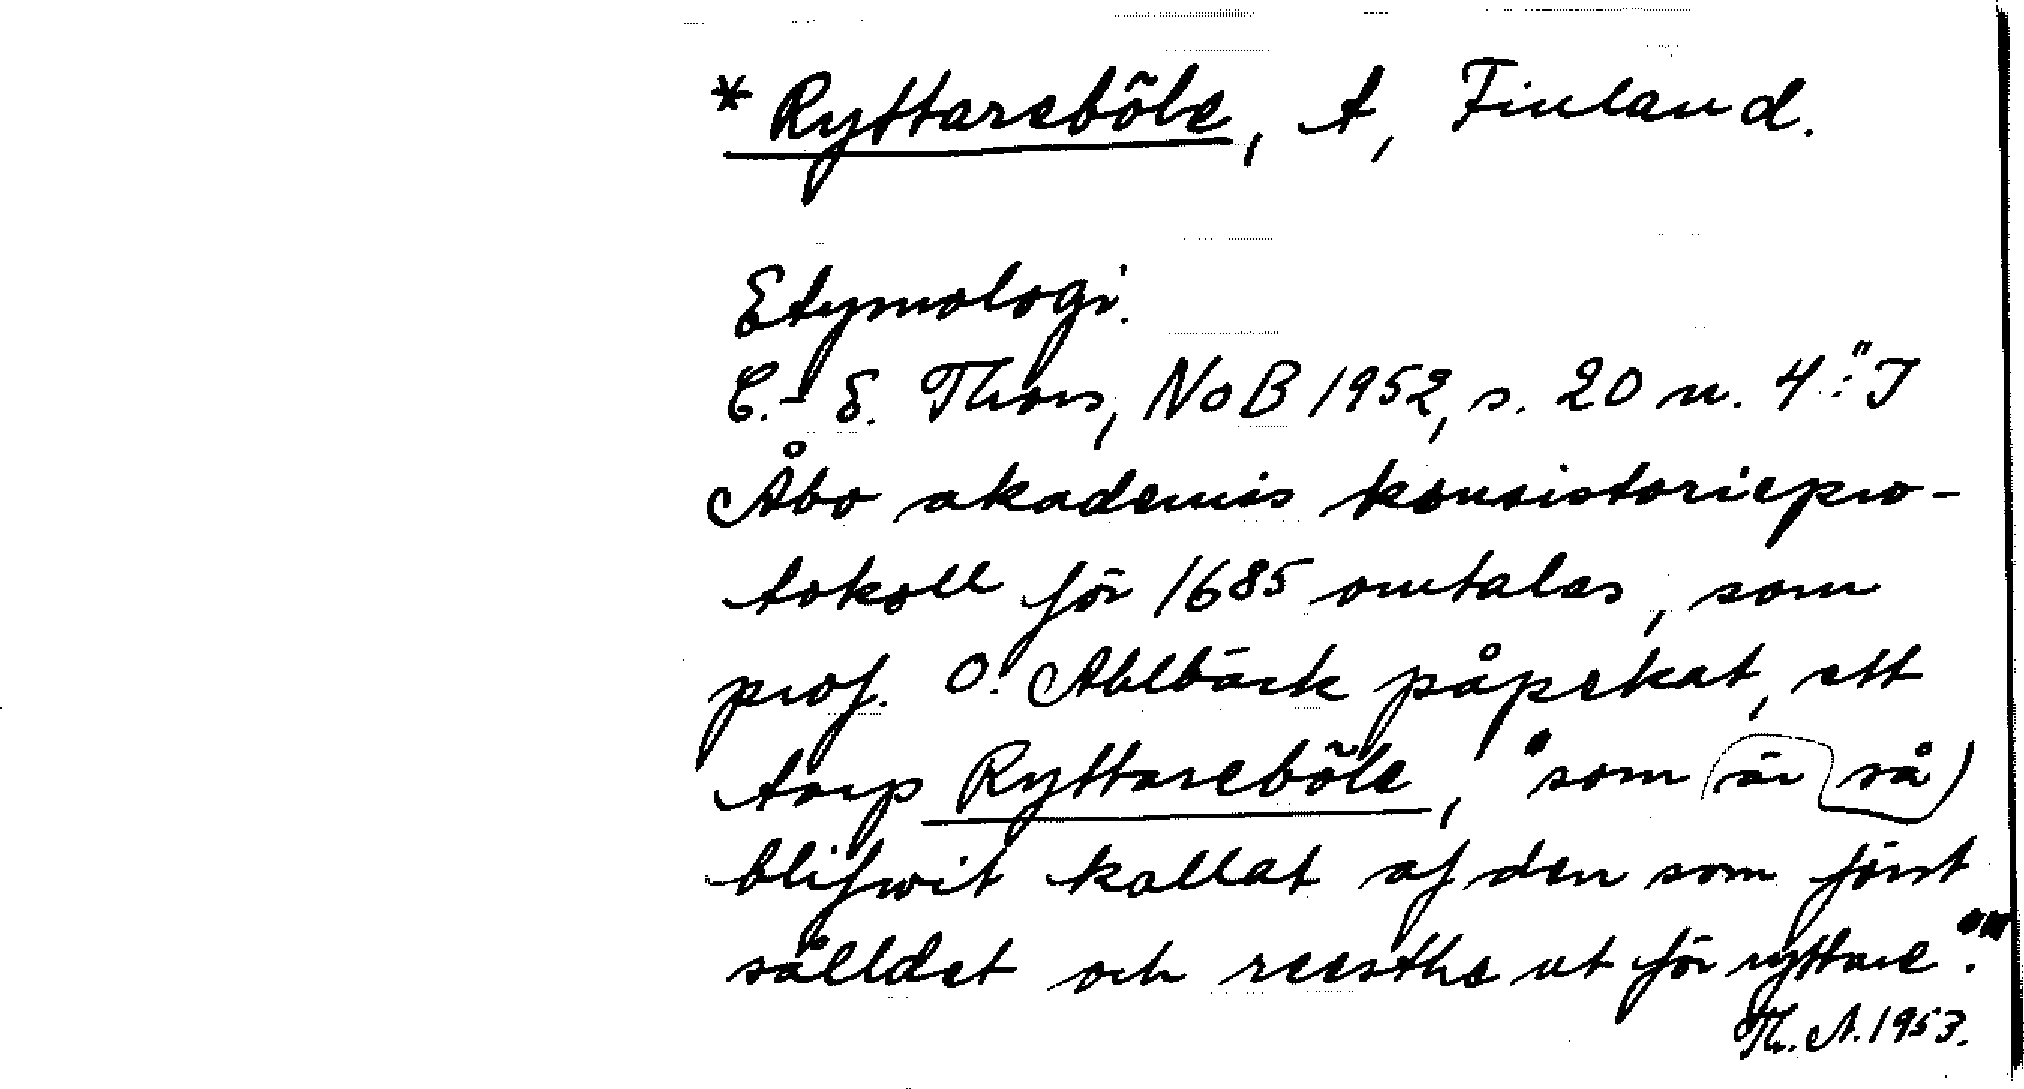 * Ryttareböle, t, Finland.
Etymologi.
C.-E. Thors, NoB 1952, s. 20 n. 4: "I
Åbo akademis konsistoriepro-
tokoll för 1685 omtalas, som
prof. O. Ahlbäck påpekat, ett
torp Ryttareböle, "som är så
blifwit kallat af den som först
sålldet och reesthe ut för ryttare"."
Th. A. 1953.